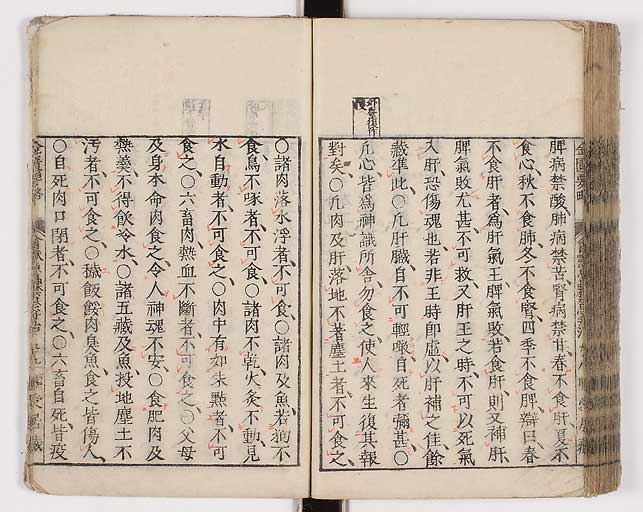 脾病禁酸肺病禁苦腎病禁甘春不食肝夏不
食心秋不食肺冬不食腎四季不食脾辯曰春
不食肝者為肝氣王脾氣敗若食肝則又補肝
脾氣敗尤甚不可救又肝王之時不可以死氣
入肝恐傷魂也若非王時即虛以肝補之佳餘
藏準此○凡肝臓自不可輕噉自死者彌甚○
凡心皆為神識所舍勿食之使人來生復其報
對矣○凡肉及肝落地不著塵土者不可食之
○諸肉落水浮者不可食○諸肉及魚若狗不
食鳥不啄者不可食○諸肉不乾火灸不動見
水自動者不可食之○肉中有如朱點者不可
食之○六畜肉熱血不斷者不可食之○父母
及身本命肉食之令人神魂不安○食肥肉及
熱羹不得飲冷水○諸五藏及魚投地塵土不
汚者不可食之○穢飯餒肉臭魚食之皆傷人
○自死肉口閉者不可食之○六畜自死皆疫